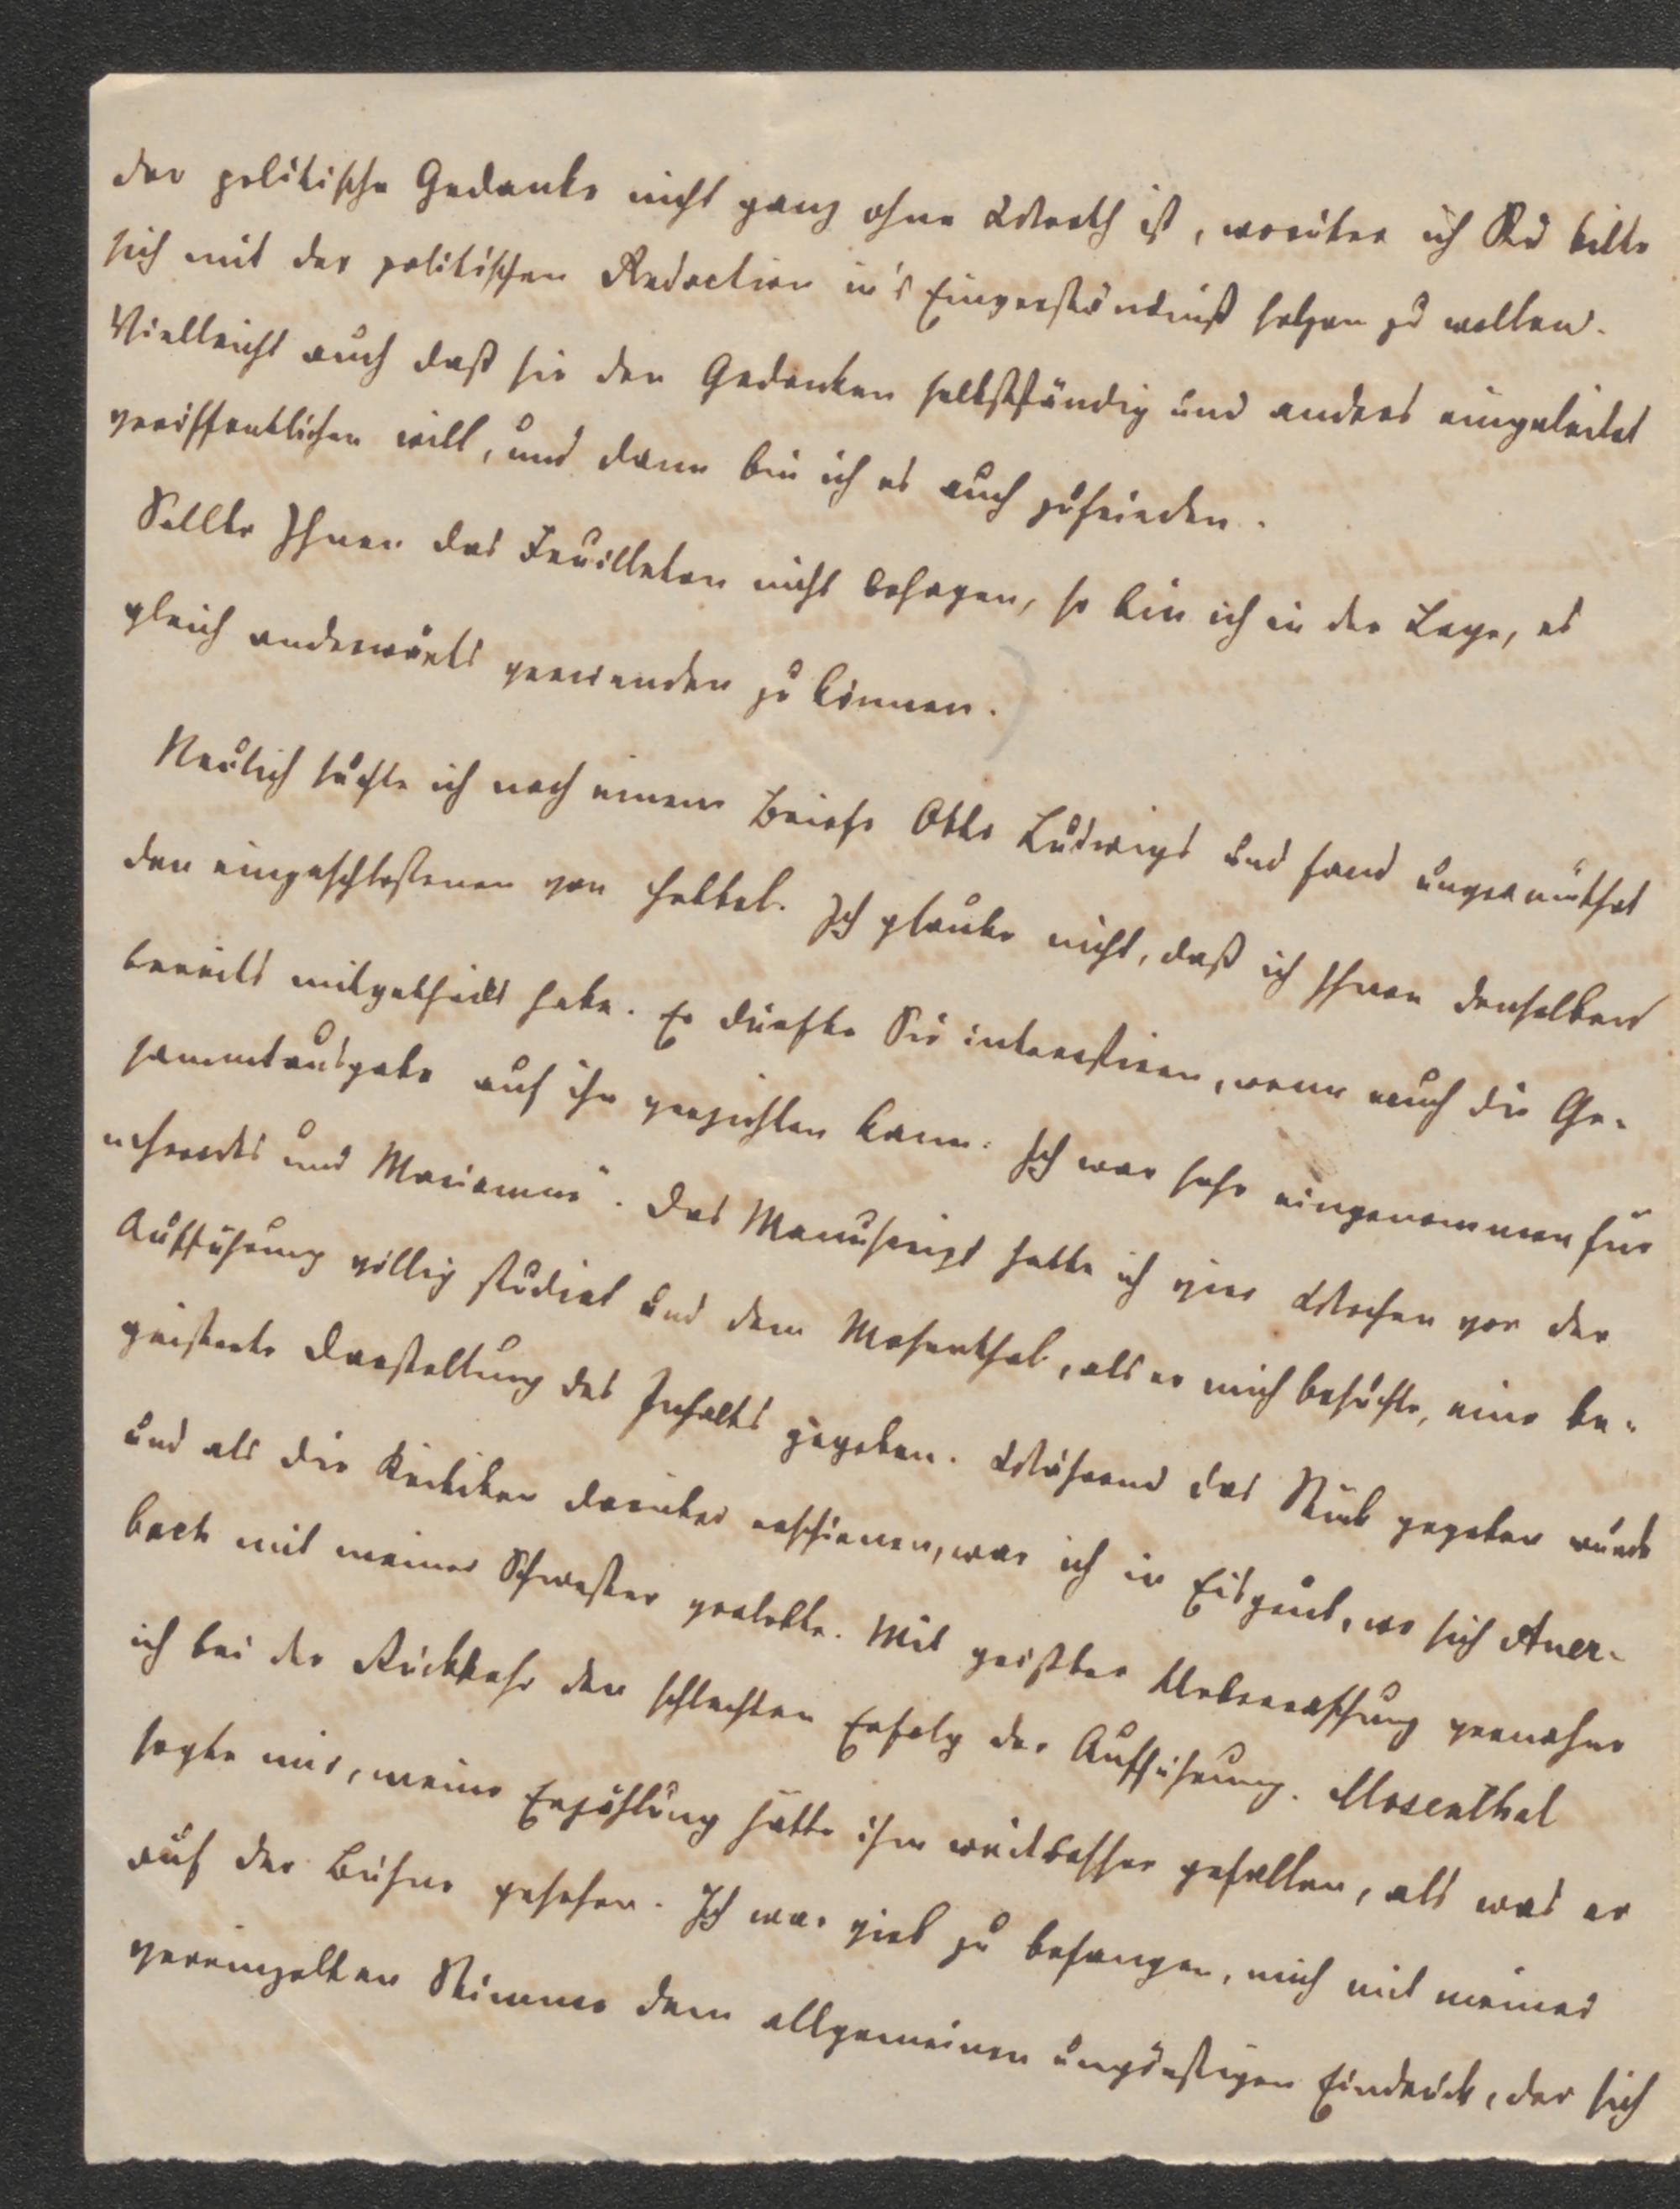 der politische Gedanke nicht ganz ohne Werth ist, worüber ich Sie bitte
sich mit der politischen Redaction in's Einverständniß setzen zu wollen.
Vielleicht auch daß sie den Gedanken selbstständig und anders eingeleitet
veröffentlichen will, und dann bin ich es auch zufrieden.
Sollte Ihnen das Feuilleton nicht behagen, so bin ich in der Lage, es
gleich anderwärts verwenden zu können.
Neulich suchte ich nach einem Briefe Otto Ludwigs und fand unvermuthet
den eingeschlossenen von Hebbel. Ich glaube nicht, daß ich Ihnen denselben
bereits mitgetheilt habe. Er dürfte Sie interessiren, wenn auch die Ge-
sammtausgabe auf ihn verzichten kann. Ich war sehr eingenommen für
„Herodes und Mariamne". Das Manuscript hatte ich vier Wochen vor der
Aufführung völlig studiert und dem Mosenthal, als er mich besuchte, eine be-
geisterte Darstellung des Inhalts gegeben. Während das Stück gegeben wurde
und als die Kritiken darüber erschienen, war ich in Eisgrub, wo sich Auer-
bach mit meiner Schwester verlobte. Mit größter Ueberraschung vernahm
ich bei der Rückkehr den schlechten Erfolg der Aufführung. Mosenthal
sagte mir, meine Erzählung hätte ihm weit besser gefallen, als was er
auf der Bühne gesehen. Ich war viel zu befangen, mich mit meiner
vereinzelten Stimme dem allgemeinen ungünstigen Eindruck, der sich